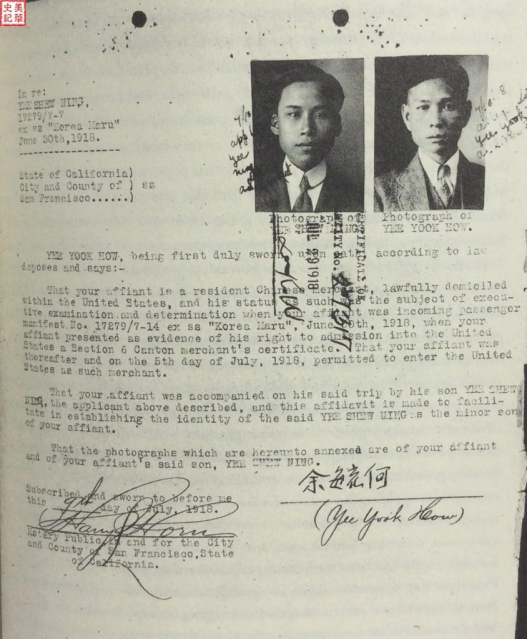 美華
史記
In re:
YEE SHEW NING,
17279/7-7
ex ss "Korea Maru"
June 30th, 1918.
State of California)
City and County of ) ss
San Francisco......)
Photograph of
YEE SHEW NING.
Photograph of
YEE YOOK HOW.
YEE YOOK HOW, being first duly sworn, upon oath, according to law
deposes and says:-
That your affiant is a resident Chinese merchant, lawfully domiciled
within the United States, and his status as such was the subject of execu-
tive examination and determination when your affiant was incoming passenger
manifest No. 17279/7-14 ex ss "Korea Maru", June 30th, 1918, when your
affiant presented as evidence of his right to admission into the United
States a Section 6 Canton merchant's certificate. That your affiant was
thereafter and on the 5th day of July, 1918, permitted to enter the United
States as such merchant.
That your affiant was accompanied on his said trip by his son YEE SHEW
NING, the applicant above described, and this affidavit is made to facili-
tate in establishing the identity of the said YEE SHEW NING as the minor son
of your affiant.
That the photographs which are hereunto annexed are of your affiant
and of your affiant's said son, YEE SHEW NING.
Subscribed and sworn to before me
this day of July, 1918.
Notary Public in and for the City
and County of San Francisco, State
of California.
(Yee Yook How)